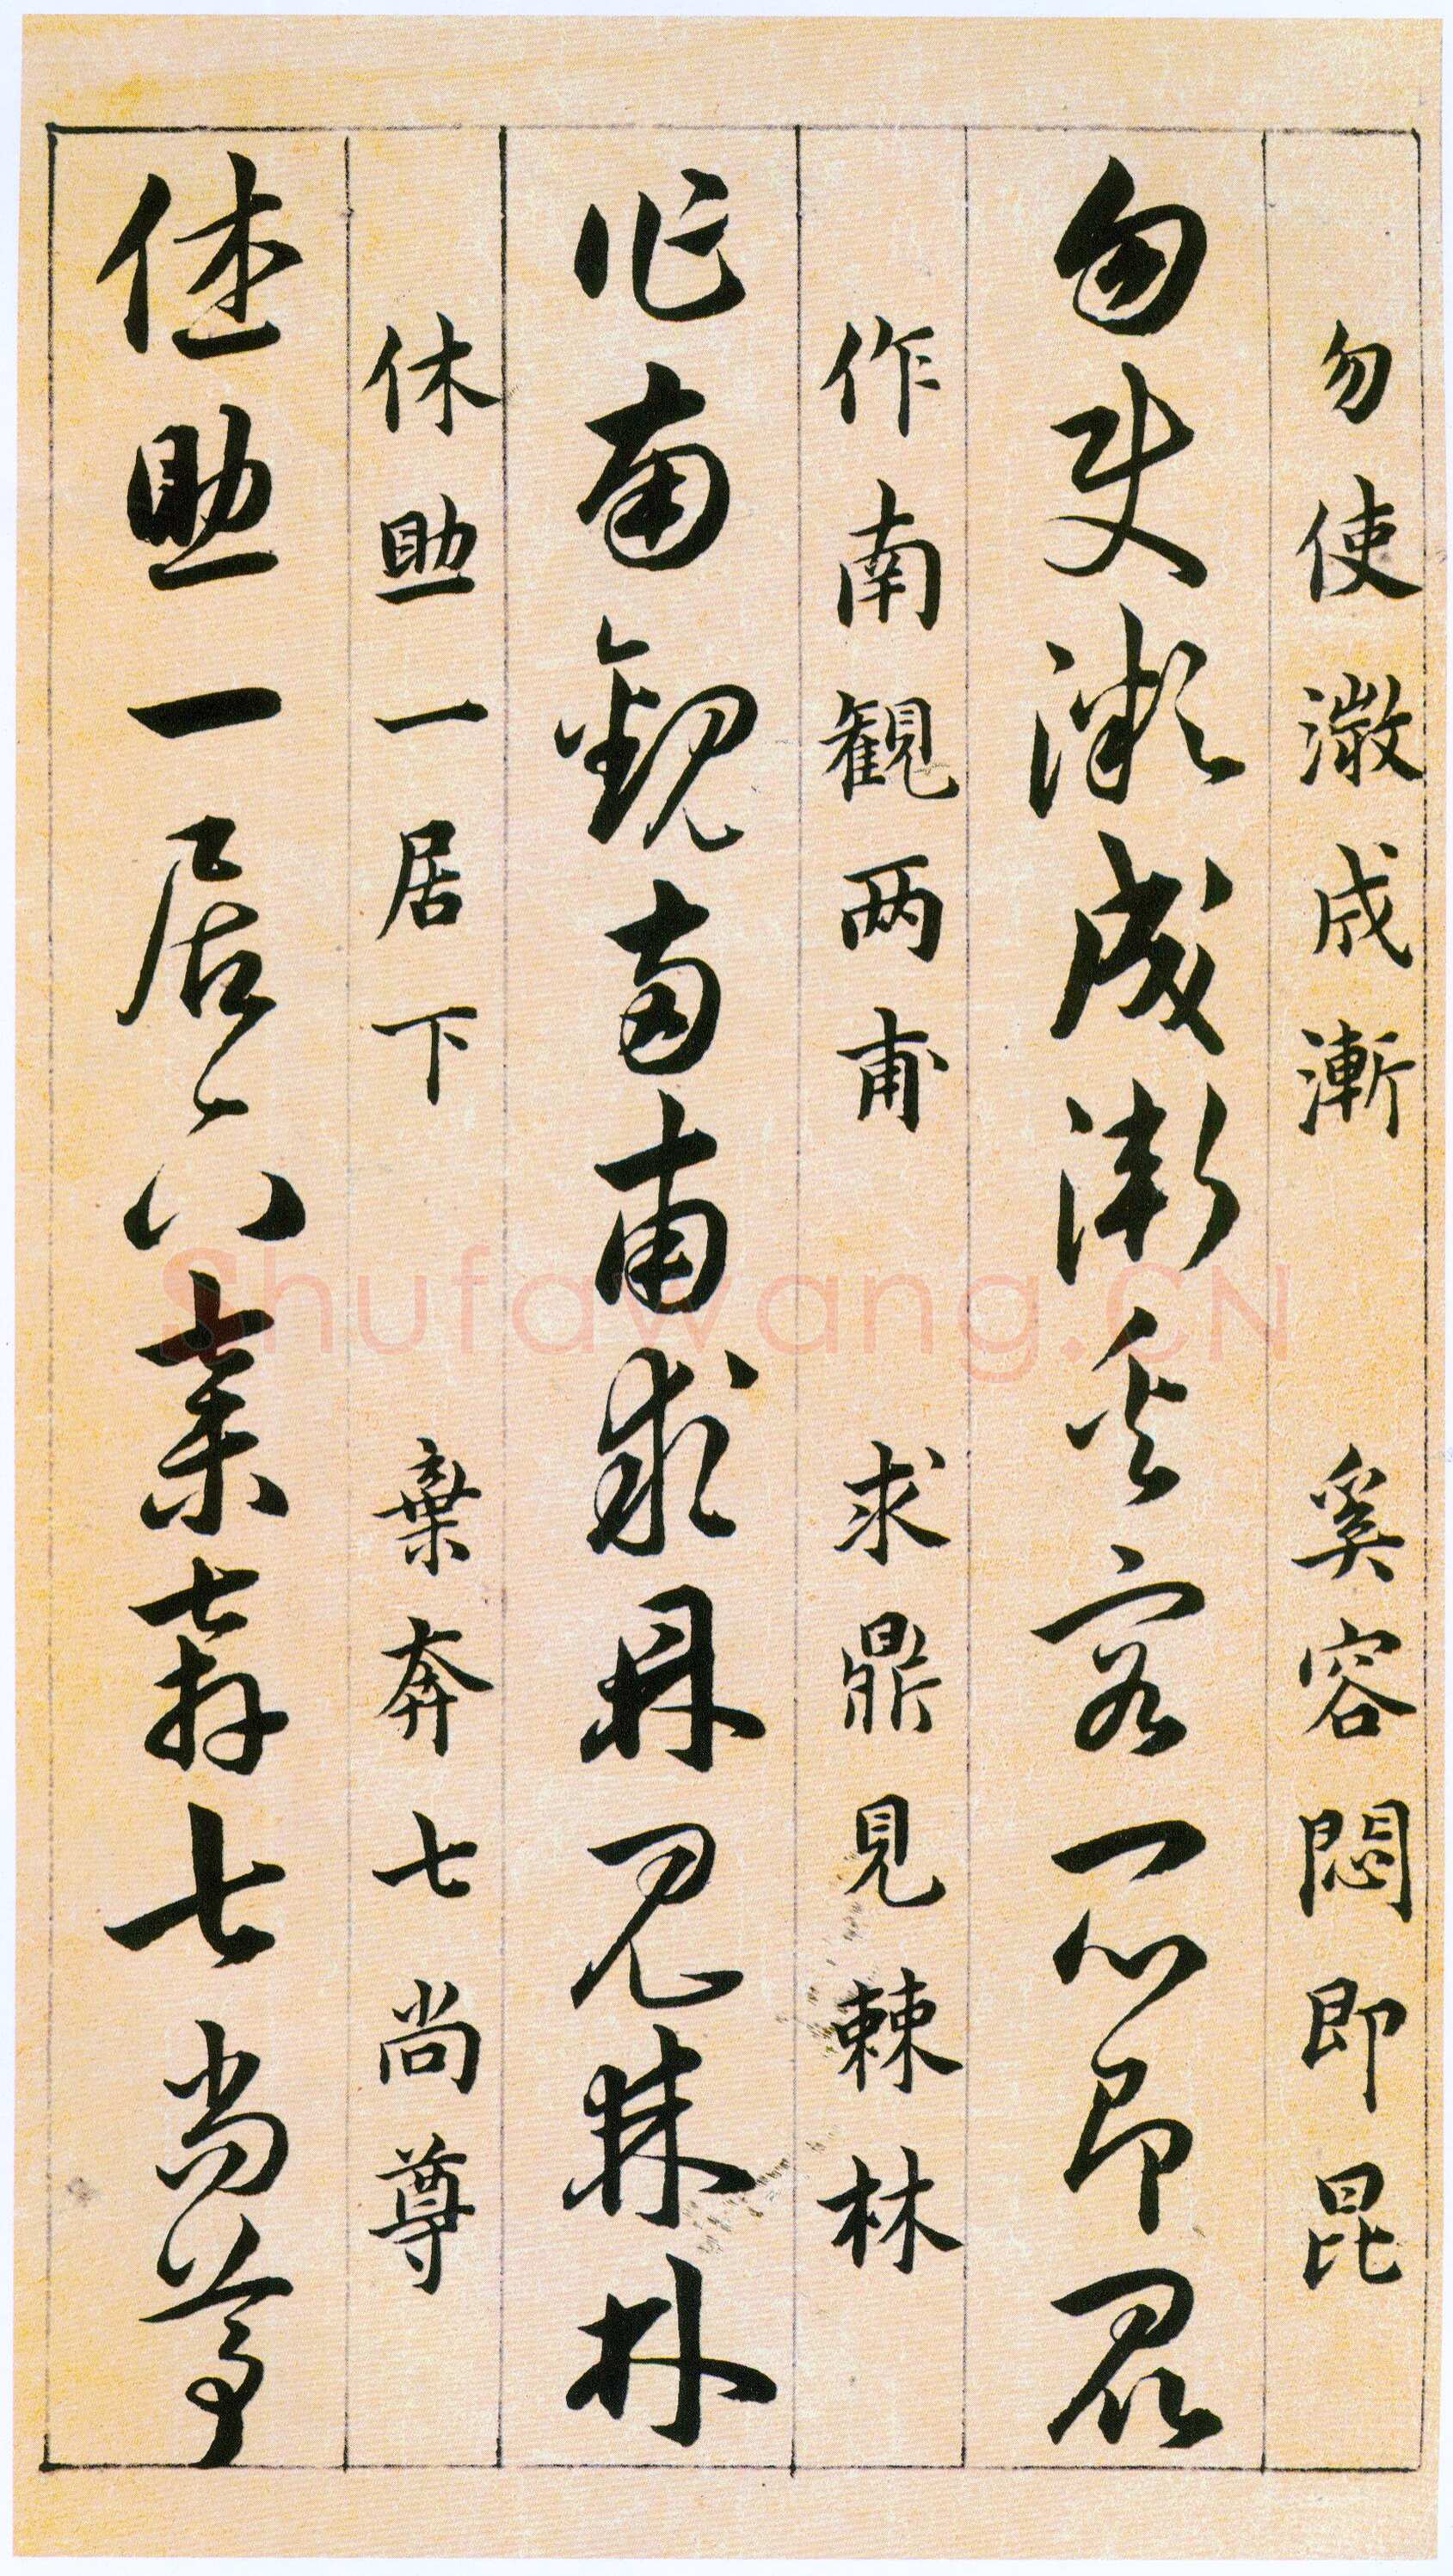 勿使潋成漸　奚容悶即昆
勿使潋成漸奚容悶即昆
作南觀两甫　求鼎見棘林
作南觀两甫求鼎見棘林
休助一居下　棄奔七尚尊
休助一居下棄奔七尚尊
Shufawang.CN